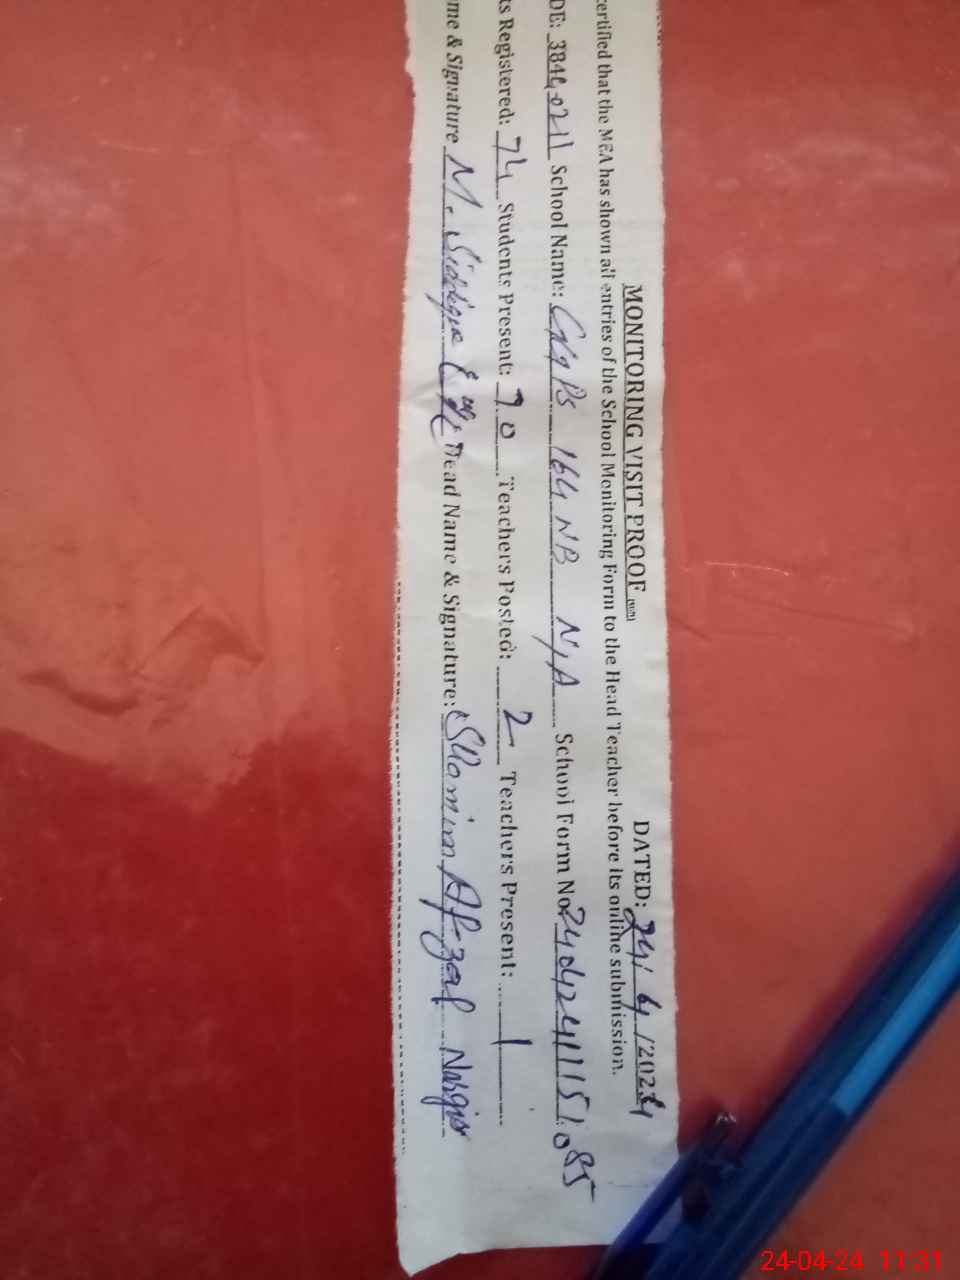 MONITORING VISIT PROOF DATED: 24/ 4 /2024
certified that the MEA has shown all entries of the School Monitoring Form to the Head Teacher before its online submission.
DE: 38440211 School Name: GGPS 164 NB N/A School Form No 24042411151085
ts Registered: 74 Students Present: 70 Teachers Posted: 2 Teachers Present: 1
me & Signature M. Siddique Head Name & Signature: Shamim Afzal Nargis
24-04-24 11:31